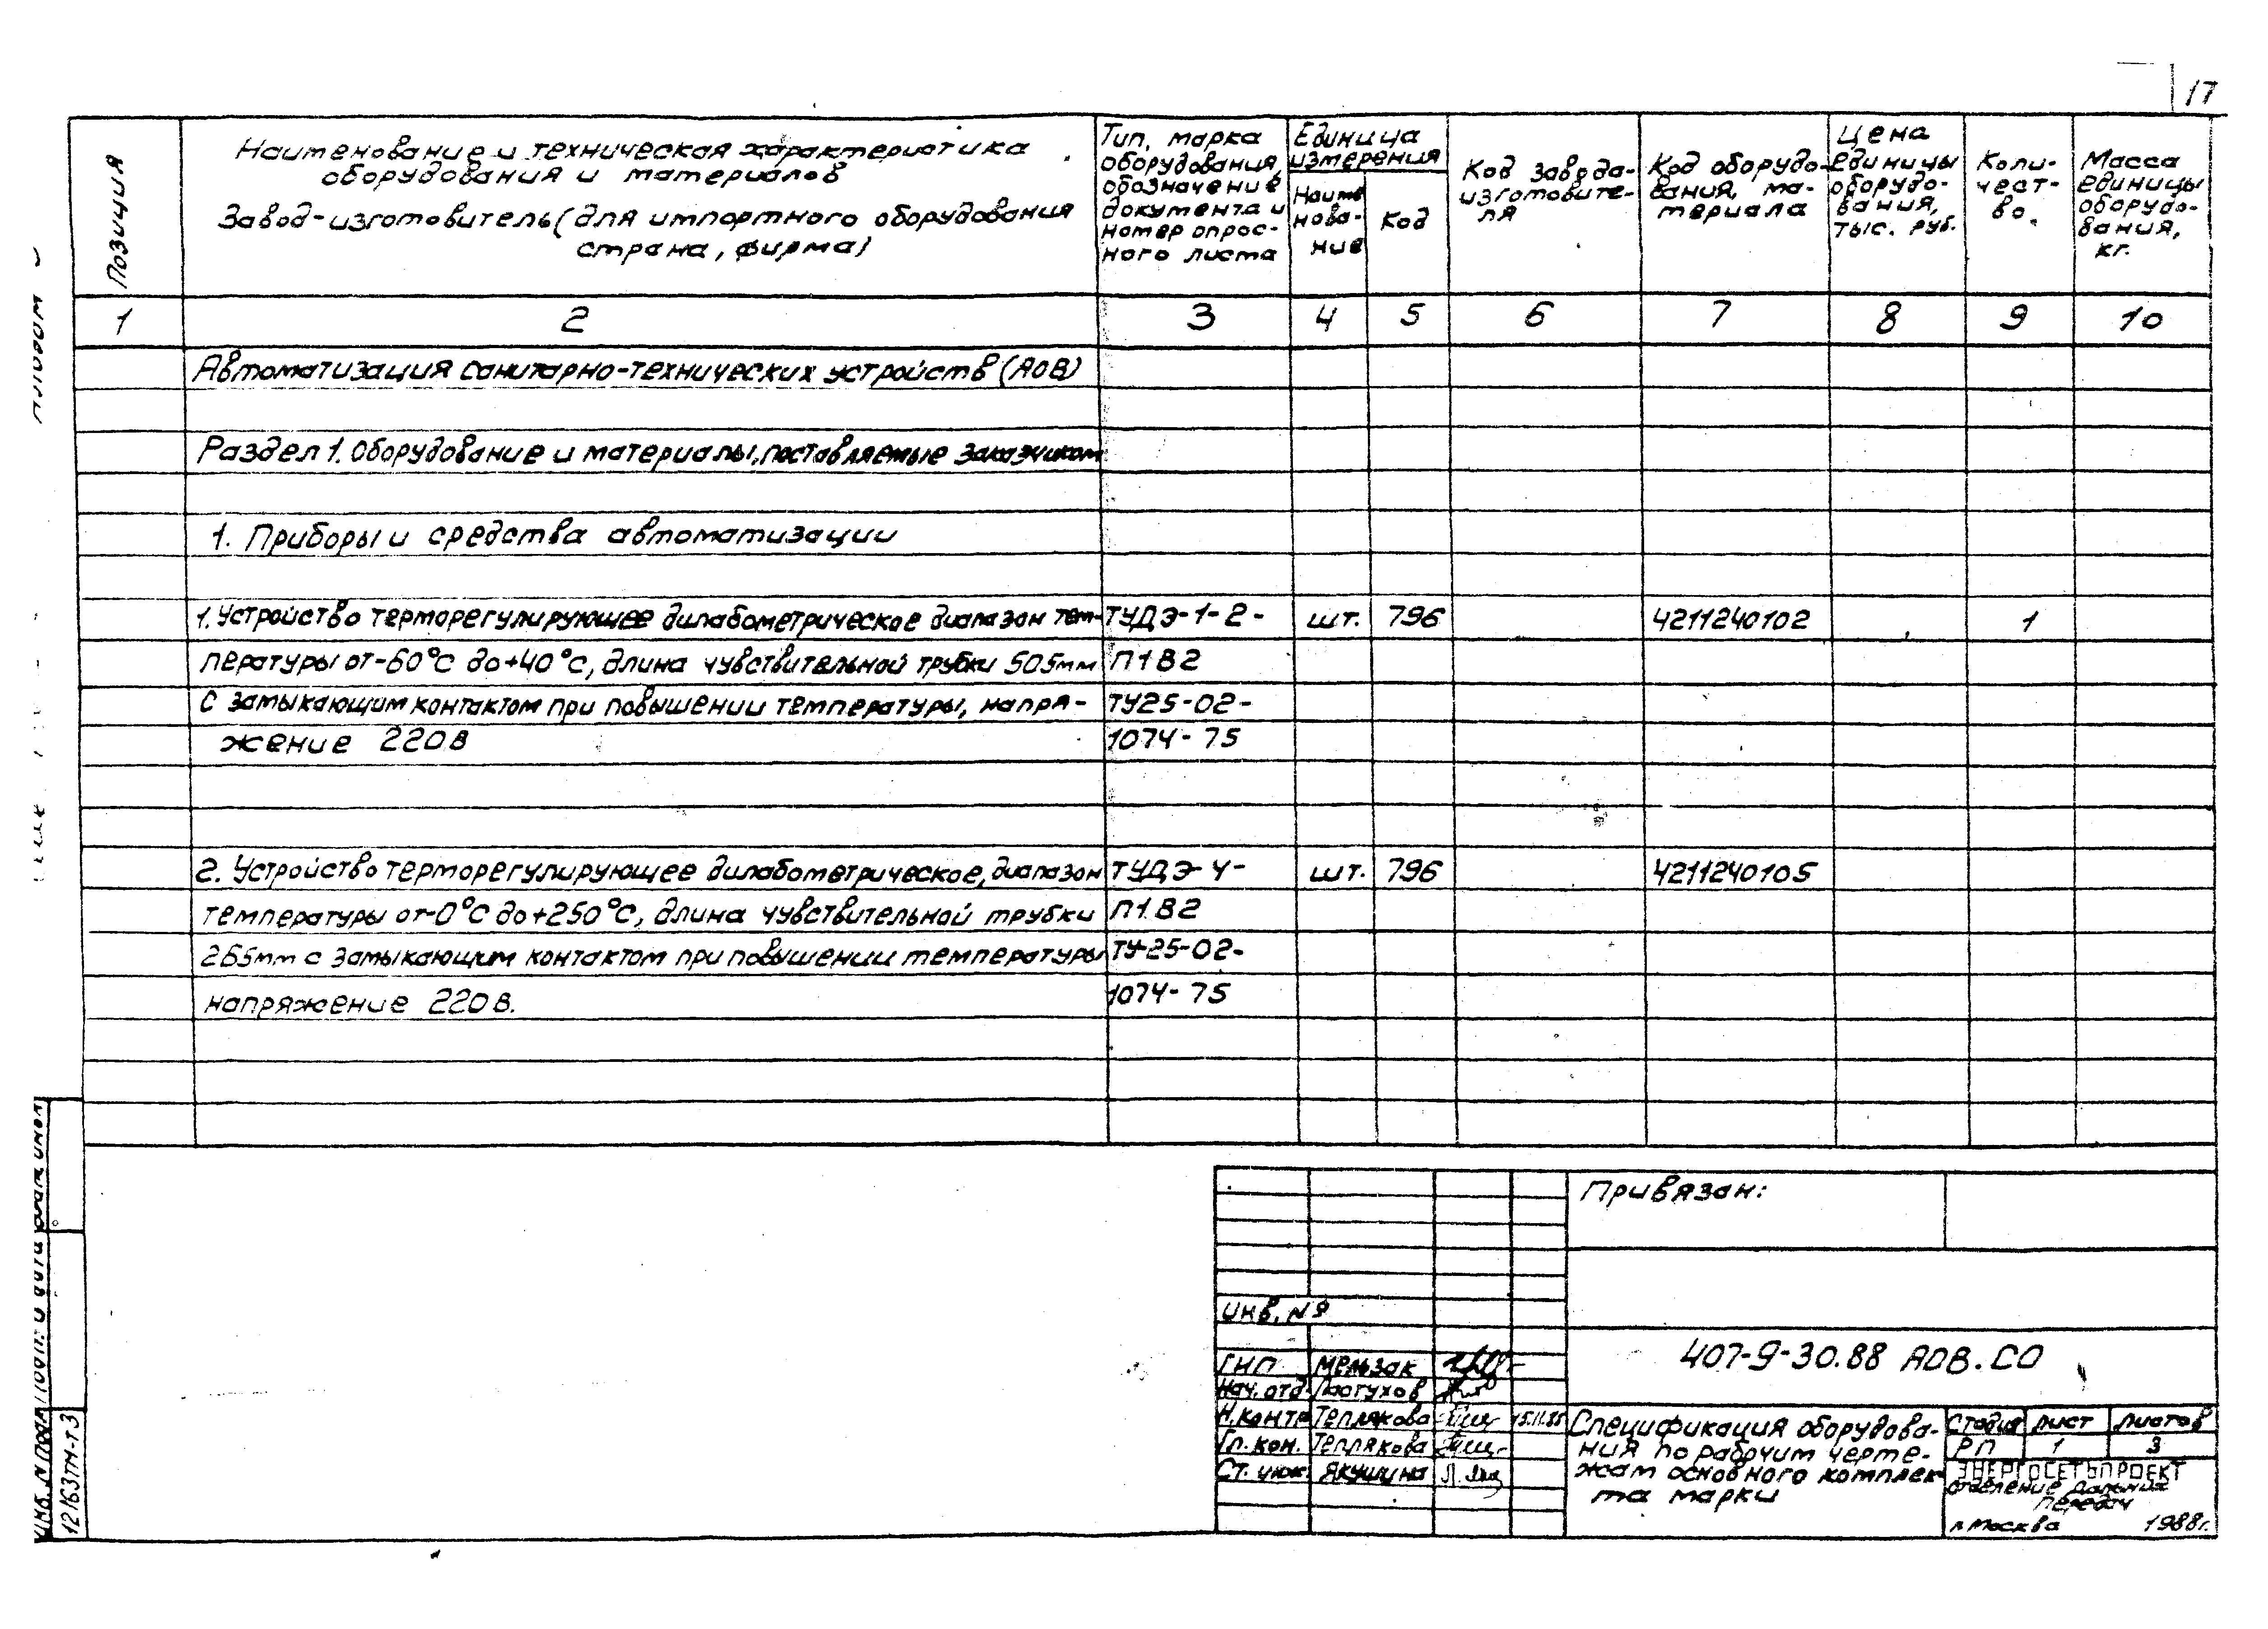 17
Позиция
Наименование и техническая характеристика
оборудования и материалов
Завод-изготовитель (для импортного оборудования
страна, фирма)
Тип, марка
оборудования,
обозначение
документа и
номер опрос-
ного листа
Единица
измерения
Наиме
нова-
ние
Код
Код завода-
изготовите-
ля
Код оборудо-
вания, ма-
териала
Цена
единицы
оборудо-
вания,
тыс. руб.
Коли-
чест-
во.
Масса
единицы
оборудо-
вания,
кг.
1 2 3 4 5 6 7 8 9 10
Автоматизация санитарно-технических устройств (АОВ)
Раздел 1. Оборудование и материалы, поставляемые заказчиком
1. Приборы и средства автоматизации
1. Устройство терморегулирующее дилабометрическое диапазон тем- ТУДЭ-1-2- шт. 796 4211240102 1
пературы от-60°С до+40°С, длина чувствительной трубки 505мм П1В2
с замыкающим контактом при повышении температуры, напря- ТУ25-02-
жение 220В 1074-75
2. Устройство терморегулирующее дилабометрическое, диапазон ТУДЭ-4- шт. 796 4211240105
температуры от-0°С до+250°С, длина чувствительной трубки П1В2
265мм с замыкающим контактом при повышении температуры ТУ-25-02-
напряжение 220В. 1074-75
Привязан:
Инв. №
407-9-30.88 АОВ.СО
ГИП Мельзак
Нач. отд. Пастухов
Н.контр Теплякова
Гл. кон. Теплякова
Ст. инж. Якушина
Спецификация оборудова-
ния по рабочим черте-
жам основного комплек-
та марки
Стадия Лист Листов
РП 1 3
ЭНЕРГОСЕТЬПРОЕКТ
отделение дальних
передач
г. Москва 1988г.
Инв. N подл
12163ТМ-Т3